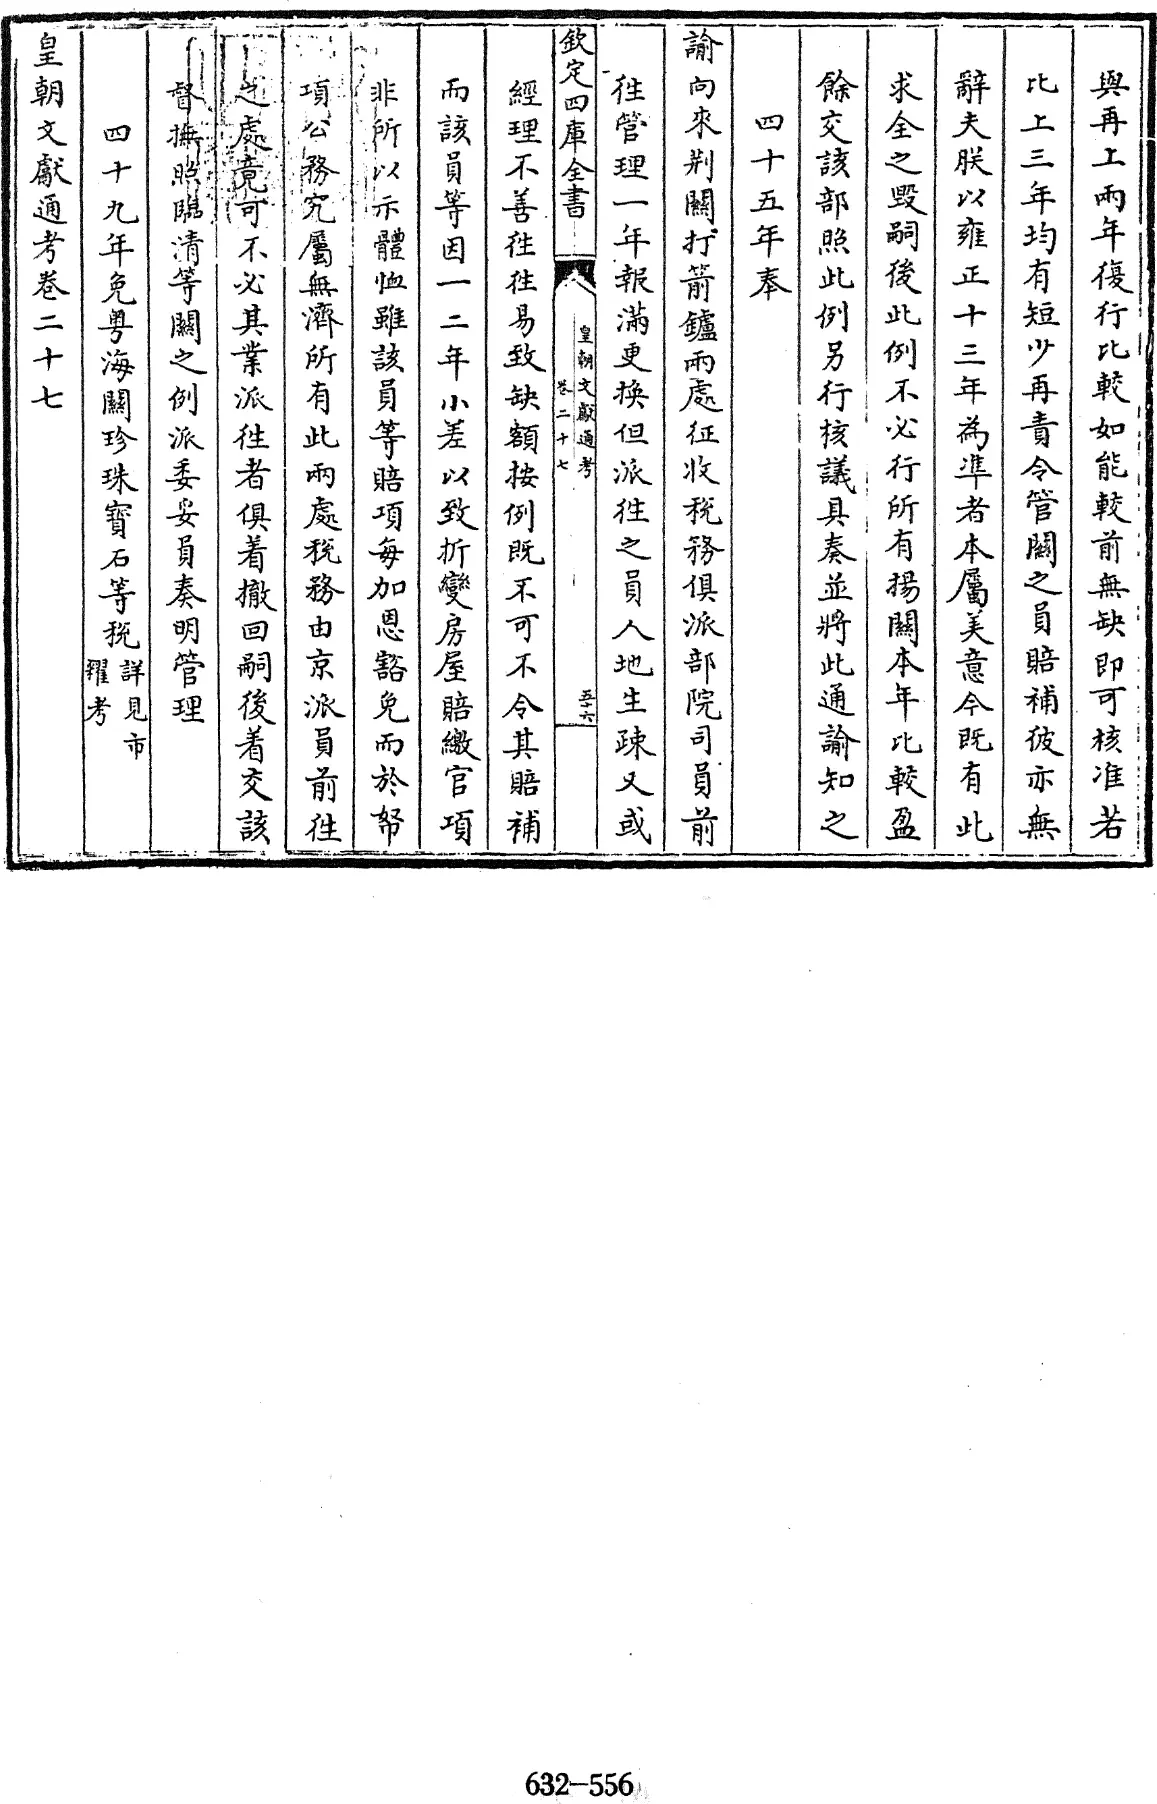 與再上兩年復行比較如能較前無缺即可核准若
比上三年均有短少再責令管關之員賠補彼亦無
辭夫朕以雍正十三年為準者本屬美意今既有此
求全之毀嗣後此例不必行所有揚關本年比較盈
餘交該部照此例另行核議具奏並將此通諭知之
四十五年奉
諭向來荆關打箭鑪兩處征收稅務俱派部院司員前
往管理一年報滿更换但派往之員人地生疎又或
欽定四庫全書
皇朝文獻通考
卷二十七
五十六
經理不善往往易致缺額按例既不可不令其賠補
而該員等因一二年小差以致折變房屋賠繳官項
非所以示體恤雖該員等賠項每加恩豁免而於帑
項公務究屬無濟所有此兩處稅務由京派員前往
之處竟可不必其業派往者俱着撤回嗣後着交該
督撫照臨清等關之例派委妥員奏明管理
四十九年免粤海關珍珠寶石等稅詳見市糴考
皇朝文獻通考卷二十七
632-556